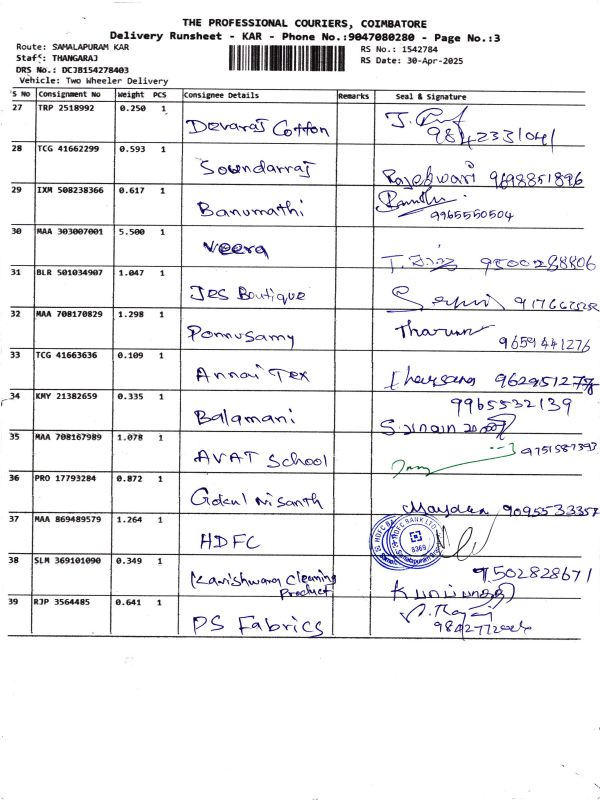 THE PROFESSIONAL COURIERS, COIMBATORE
Delivery Runsheet - KAR - Phone No.:9047080280 - Page No.:3
Route: SAMALAPURAM KAR
Staff: THANGARAJ
DRS No.: DCJB154278403
Vehicle: Two Wheeler Delivery
RS No.: 1542784
RS Date: 30-Apr-2025
S No Consignment No Weight PCS Consignee Details Remarks Seal & Signature
27 TRP 2518992 0.250 1 Devaraj Cotton 9842331041
28 TCG 41662299 0.593 1 Soundarraj Rajeshwari 9698851896
29 IXM 508238366 0.617 1 Banumathi 9965550504
30 MAA 303007001 5.500 1 Veera 9500288806
31 BLR 501034907 1.047 1 Jes Boutique
32 MAA 708170829 1.298 1 Ponnusamy Tharun 9659441276
33 TCG 41663636 0.109 1 Annai Tex
34 KMY 21382659 0.335 1 Balamani 9965532139
35 MAA 708167989 1.078 1 AVAT School 9751587393
36 PRO 17793284 0.872 1 Gokul Nisanth 9095533357
37 MAA 869489579 1.264 1 HDFC HDFC BANK LTD 8369
38 SLM 369101090 0.349 1 Kanishwara Cleaning Product 9502828671
39 RJP 3564485 0.641 1 PS Fabrics